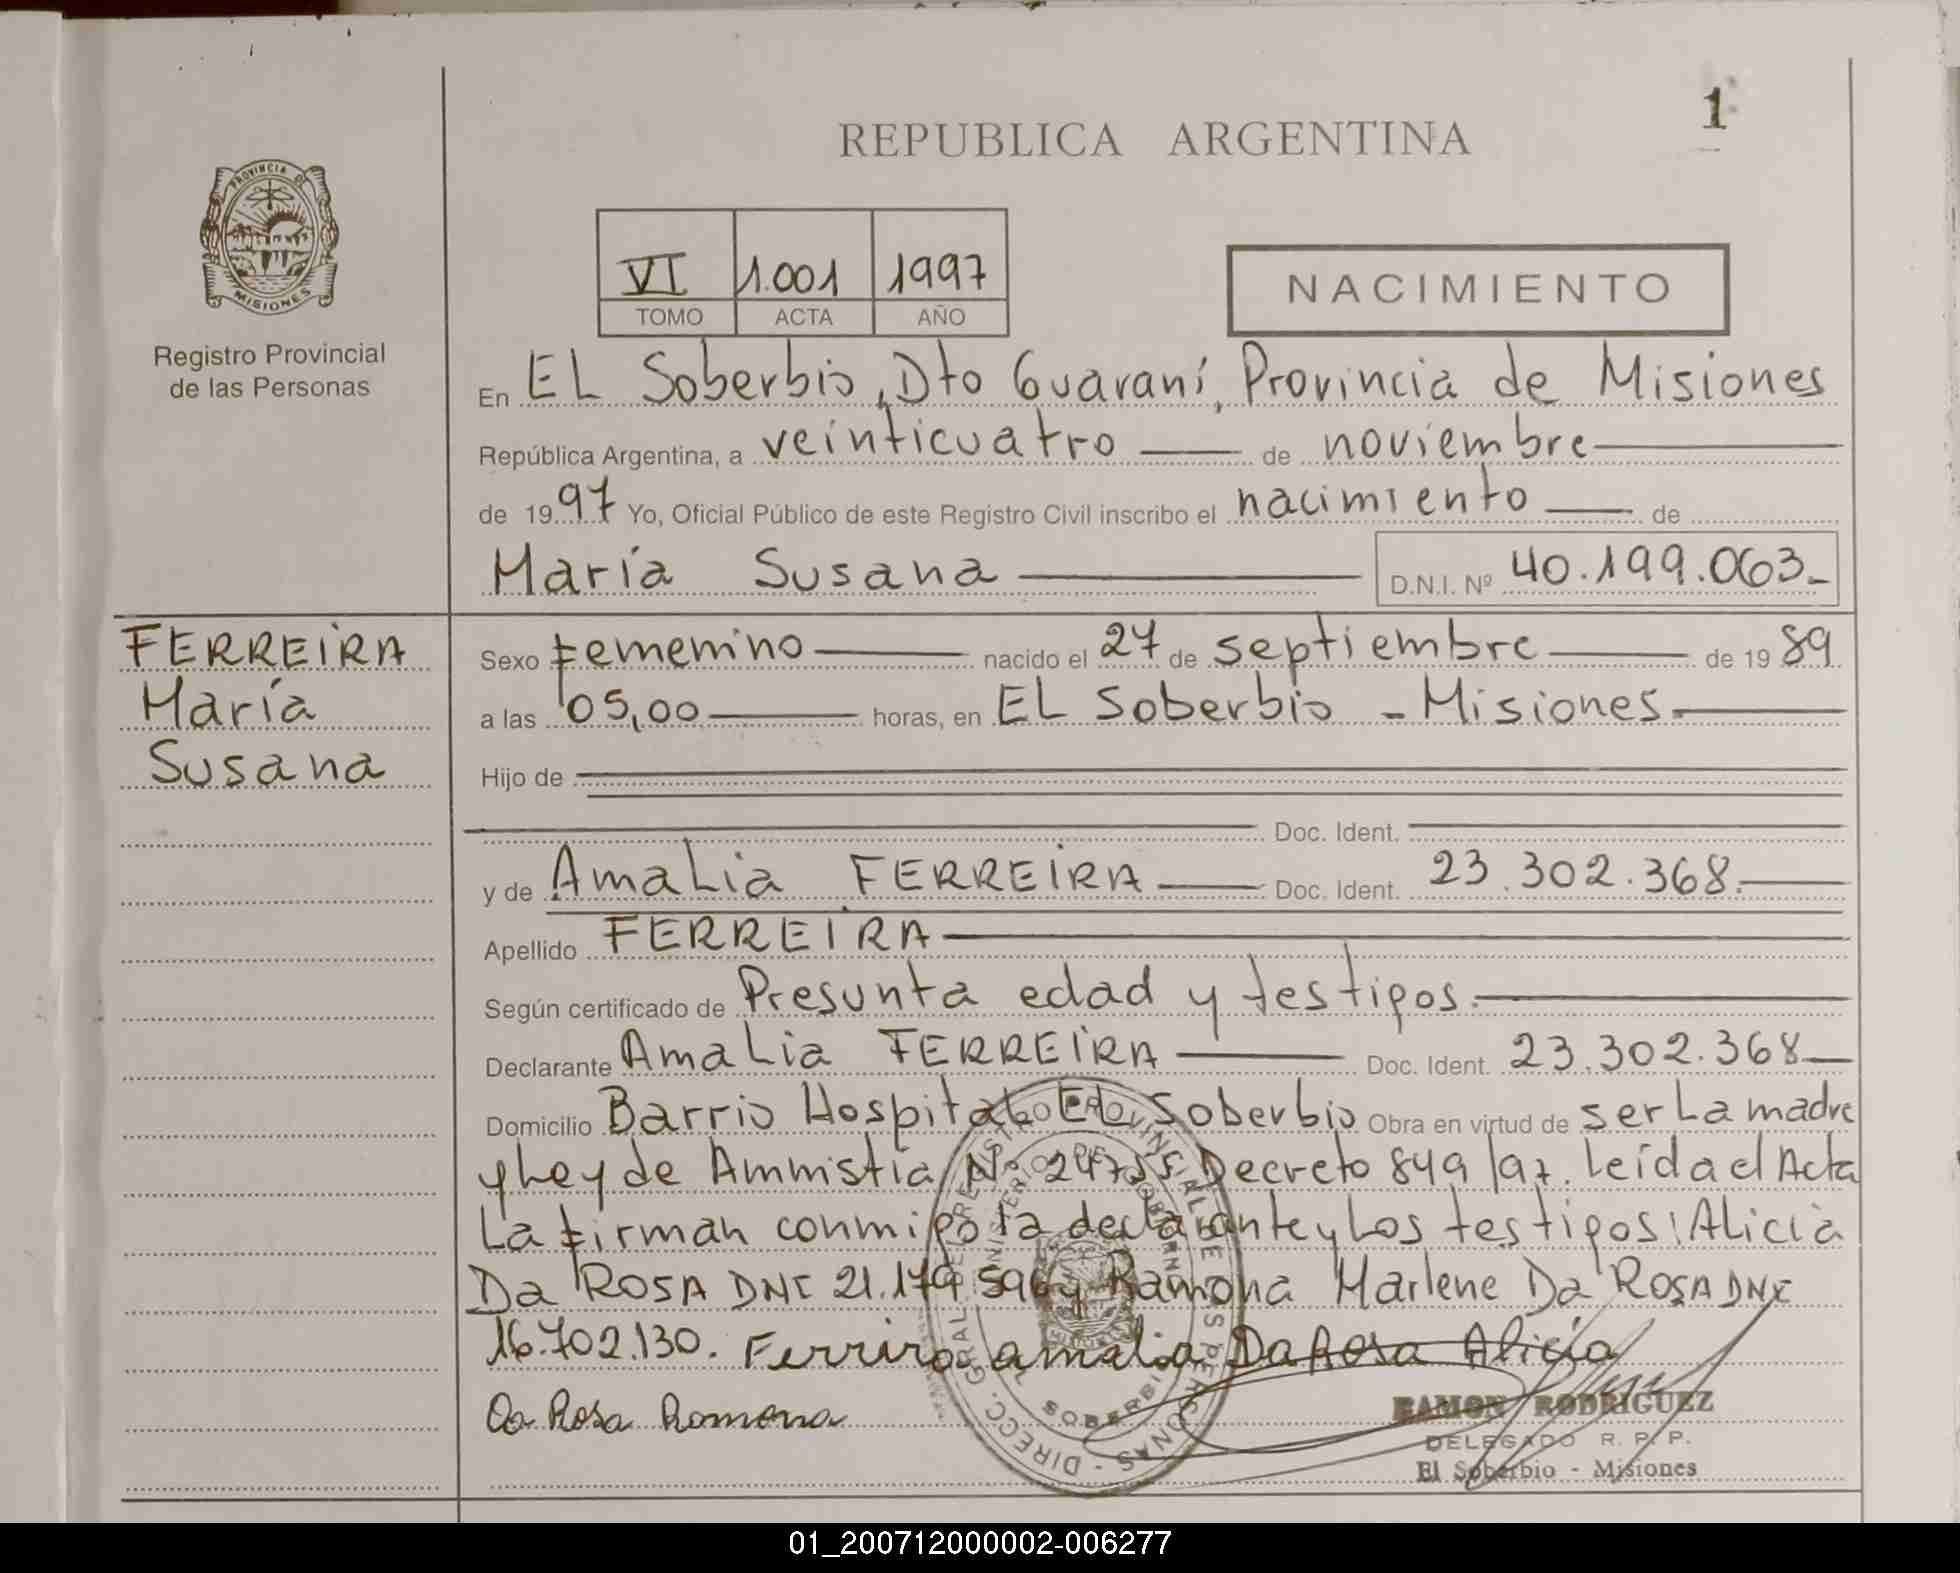 1
REPUBLICA ARGENTINA
PROVINCIA DE
MISIONES
Registro Provincial
de las Personas
VI 1.001 1997
TOMO ACTA AÑO
NACIMIENTO
En EL Soberbio, Dto Guaraní, Provincia de Misiones
República Argentina, a veinticuatro de noviembre
de 1997 Yo, Oficial Público de este Registro Civil inscribo el nacimiento de
María Susana D.N.I. Nº 40.199.063.-
FERREIRA
María
Susana
Sexo Femenino nacido el 27 de septiembre de 1989
a las 05,00 horas, en EL Soberbio - Misiones.
Hijo de
Doc. Ident.
y de Amalia FERREIRA Doc. Ident. 23.302.368.
Apellido FERREIRA
Según certificado de Presunta edad y testigos.
Declarante Amalia FERREIRA Doc. Ident. 23.302.368
Domicilio Barrio Hospital EL Soberbio Obra en virtud de ser La madre
y Ley de Amnistia Nº 24755 Decreto 849/97. Leída el Acta
La firman conmigo la declarante y Los testigos: Alicia
Da ROSA DNI 21.179.596 y Ramona Marlene Da ROSA DNI
16.702.130. Ferriro amalia Da Rosa Alicia
Da Rosa Ramona
RAMON RODRIGUEZ
DELEGADO R. P. P.
El Soberbio - Misiones
DIRECC. GRAL. DE REGISTRO PROVINCIAL DE LAS PERSONAS
MINISTERIO DE GOBIERNO
SOBERBIO
01_200712000002-006277